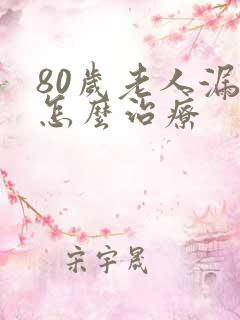 80歲老人漏
怎麼治療
宋宇晟